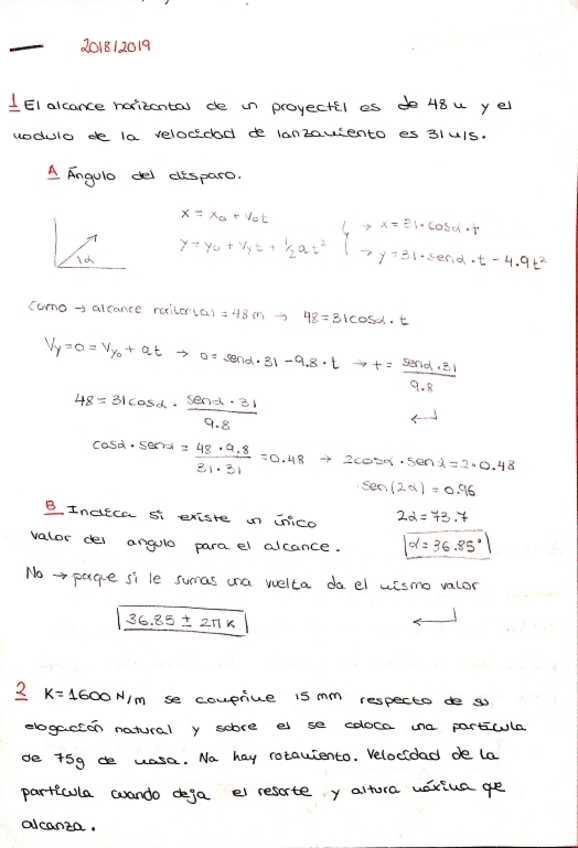 2018/2019
1 El alcance horizontal de un proyectil es de 48 m y el
modulo de la velocidad de lanzamiento es 31 m/s.
A Ángulo del disparo.
x = x₀ + v₀t
y = y₀ + Vyt + ½at²
→ x = 31·cosα·t
→ y = 31·senα·t - 4.9t²
α
como → alcance = 48m → 48 = 31cosα·t
Vy = 0 = Vy₀ + at → 0 = senα·31 - 9.8·t → t = senα·31 / 9.8
48 = 31cosα · senα·31 / 9.8
cosα·senα = 48·9.8 / 31·31 = 0.48 → 2cosα·senα = 2·0.48
sen(2α) = 0.96
B Indica si existe un único
2α = 73.7
valor del angulo para el alcance.
α = 36.85°
No → porque si le sumas una vuelta da el mismo valor
36.85 ± 2πK
2 K = 1600 N/m se comprime 15 mm respecto de su
elogación natural y sobre el se coloca una partícula
de 75g de masa. No hay rozamiento. Velocidad de la
partícula cuando deja el resorte y altura máxima que
alcanza.